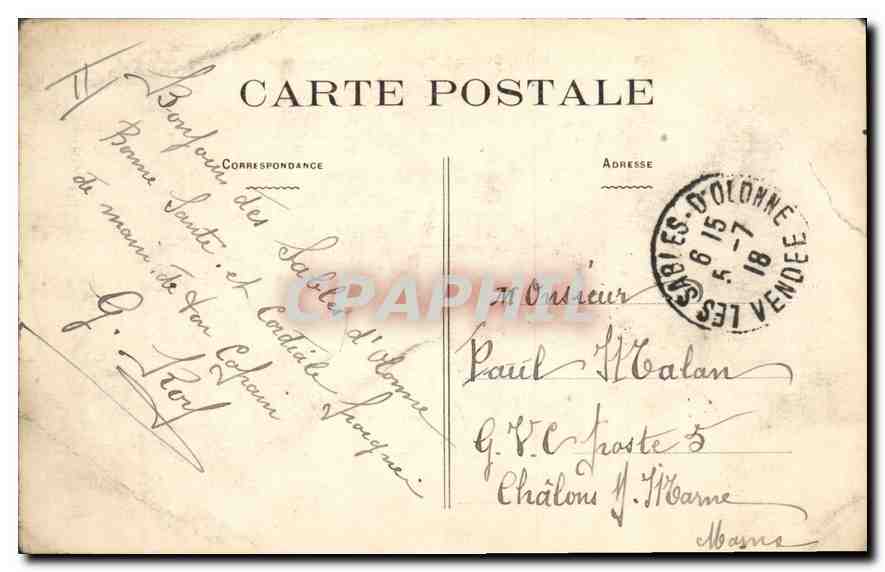 CARTE POSTALE
CORRESPONDANCE
ADRESSE
II
Bonjour des Sables d'Olonne
Bonne Santé. et Cordiale
de main. de ton Copain
G. Roy
LES SABLES-D'OLONNE
6 15
5 -7
18
VENDEE
CPAPHIL
Monsieur
Paul Malan
G.V.C poste 5
Châlons s/. Marne
Marne